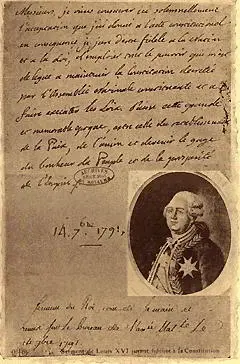 Messieurs, je viens consacrer ici solemnellement
l'acceptation que j'ai donnée à l'acte constitutionnel
en conséquence je jure d'être fidèle à la nation
et à la loi, d'employer tout le pouvoir qui m'est
délégué à maintenir la Constitution décrétée
par l'Assemblée nationale constituante et à
faire exécuter les Loix. Puisse cette grande
et mémorable époque, être celle du rétablissement
de la Paix, de l'union et devenir le gage
du bonheur du Peuple et de la prospérité
de l'Empire.
ARCHIVES
14. 7.bre 1791
du Roi, de main et
remis sur le bureau
1791.
Serment de Louis XVI jurant fidélité à la Constitution